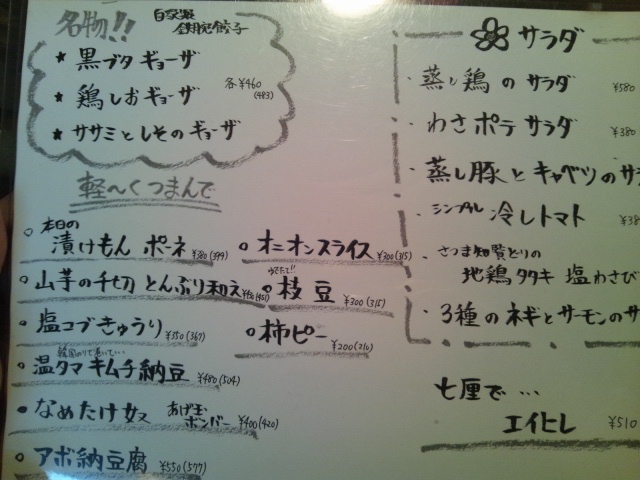 名物!! 自家製 鉄鍋餃子
★ 黒ブタ ギョーザ
★ 鶏しおギョーザ 各¥460 (483)
★ ササミとしそのギョーザ
軽〜くつまんで
本日の
漬けもん ポーネ ¥380(399)
山芋の千切 とんぶり和え
塩コブきゅうり ¥350(367)
韓国のりで巻いて…
温タマ キムチ納豆 ¥480(504)
なめたけ奴 あげ玉ボンバー ¥400(420)
アボ納豆腐 ¥550(577)
オニオンスライス ¥300(315)
ゆでたて!!
枝豆 ¥300(315)
柿ピー ¥200(210)
サラダ
・蒸し鶏 の サラダ ¥580
・わさポテ サラダ ¥380
・蒸し豚と キャベツのサラ
・シンプル 冷しトマト ¥38
・さつま知覧どりの
地鶏タタキ 塩わさび
・3種の ネギとサーモンのサ
七厘で…
エイヒレ ¥510